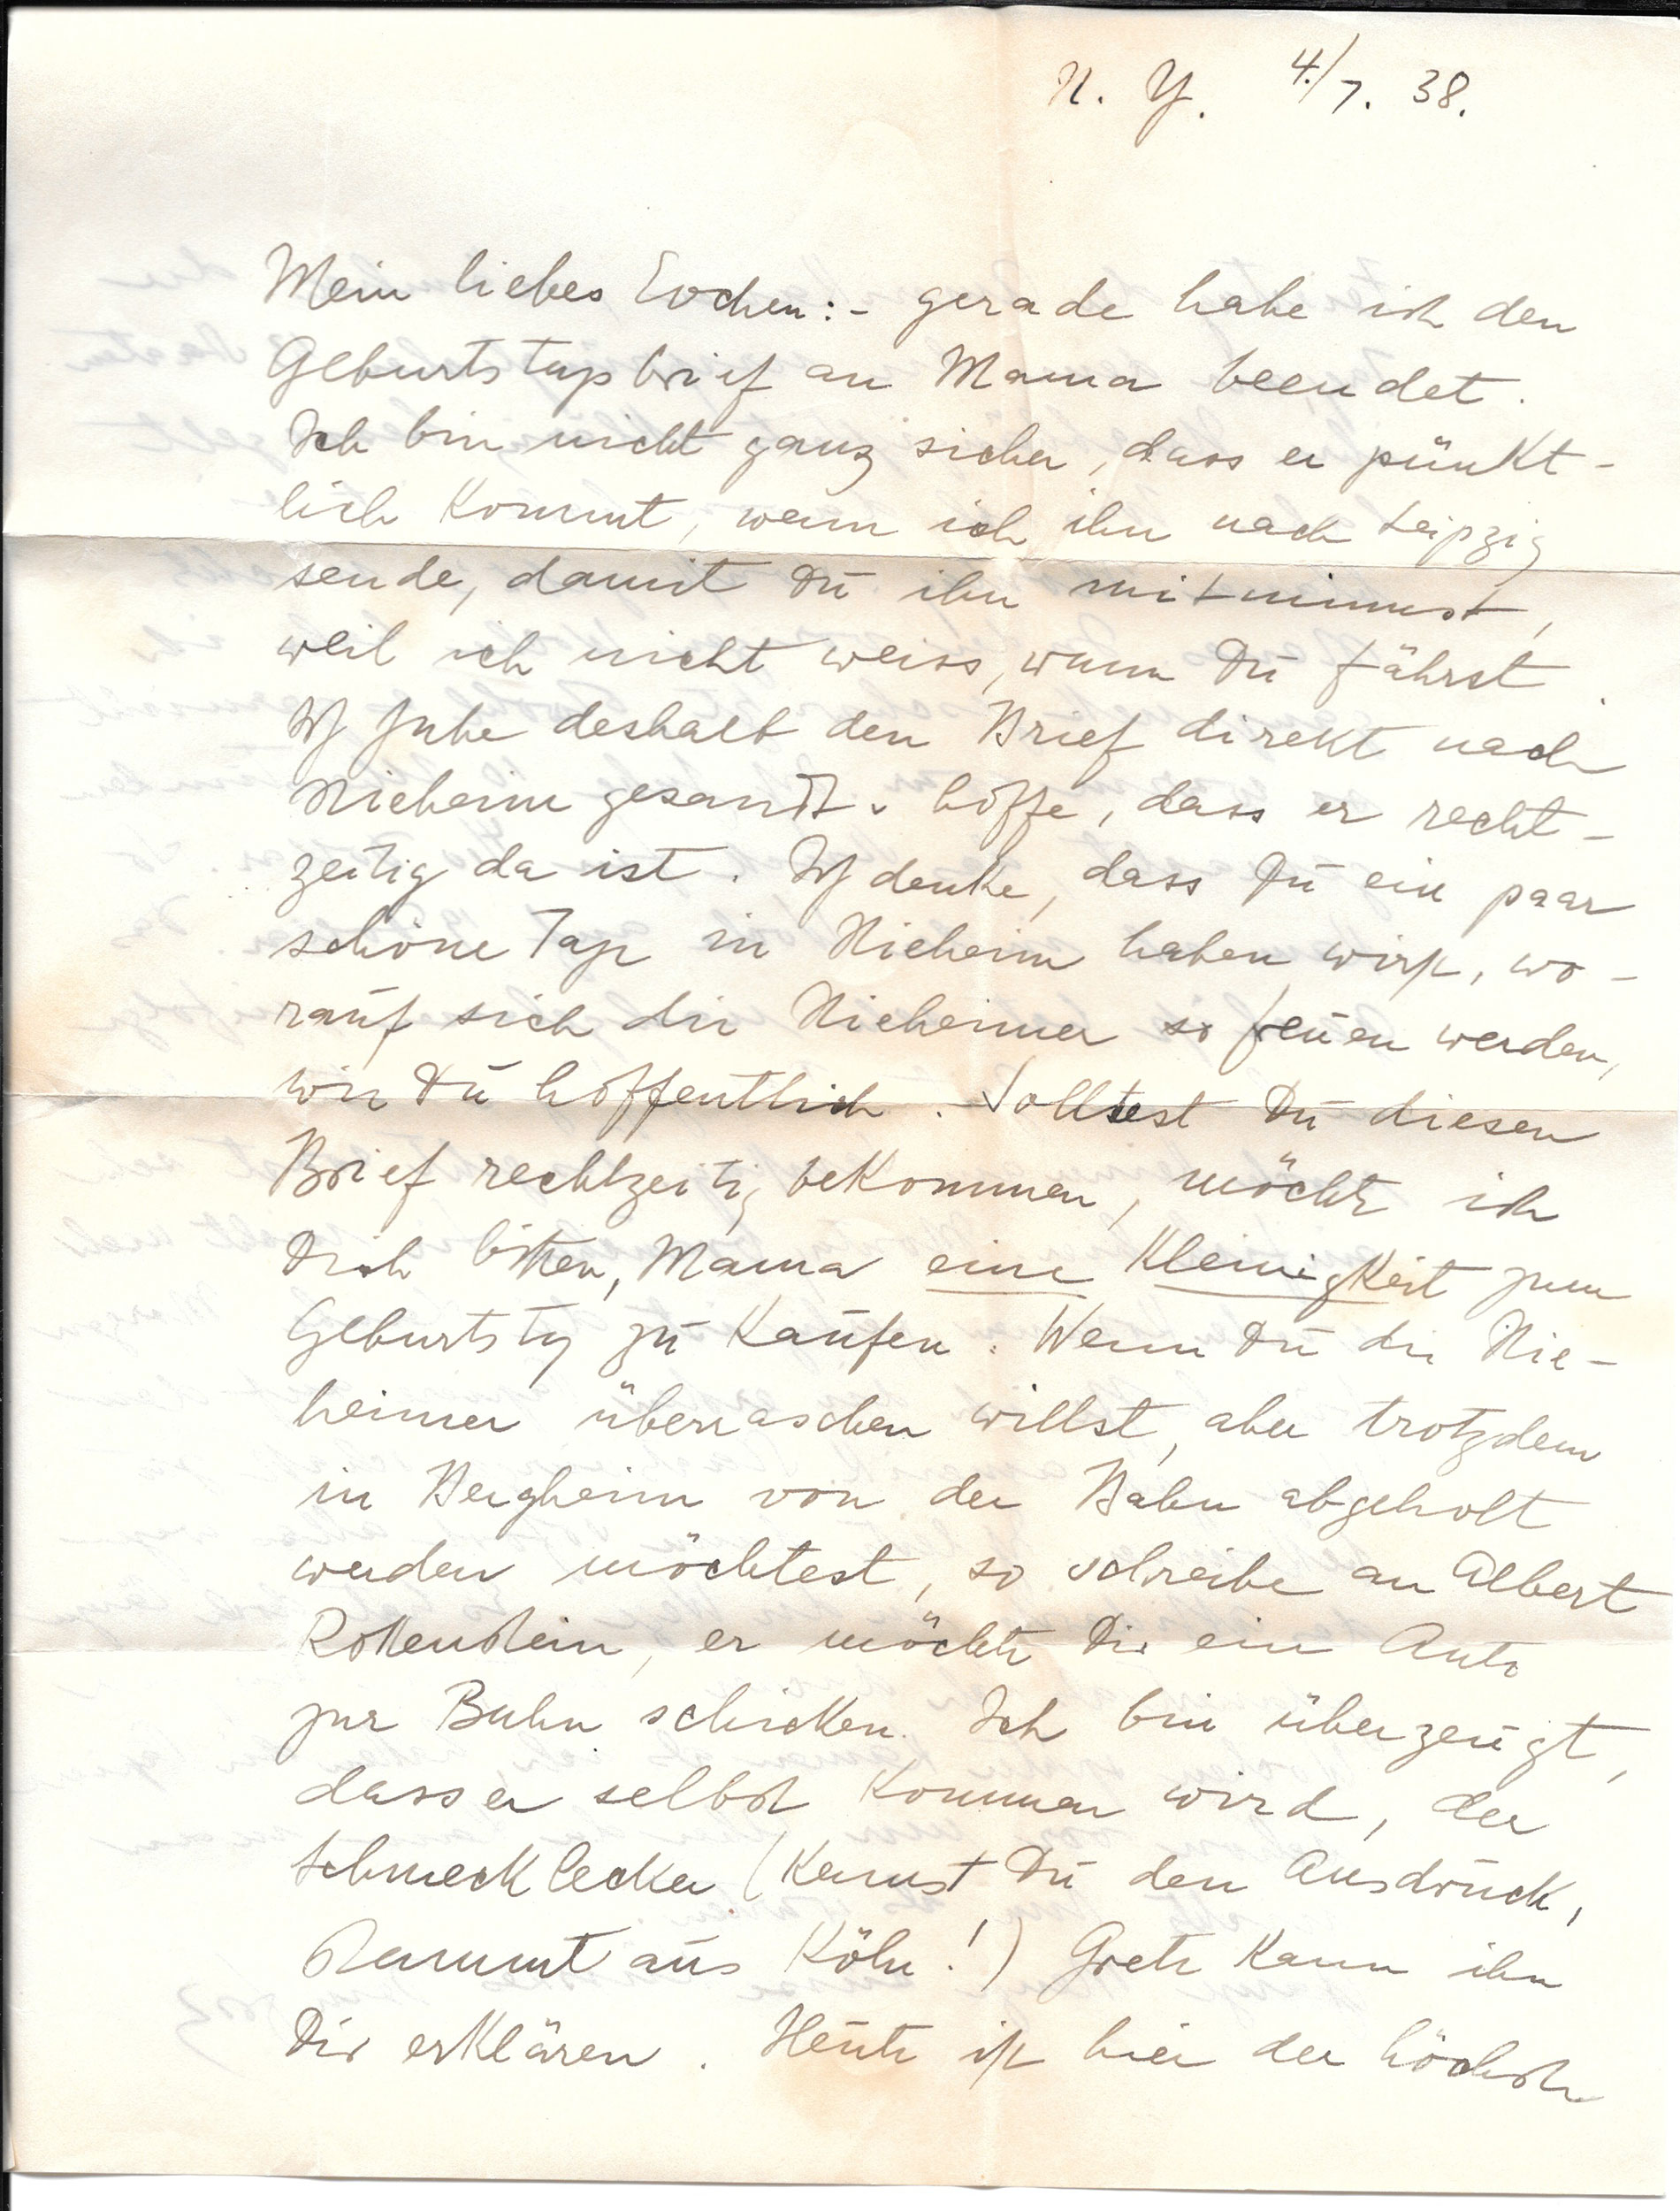 N. Y. 4./7. 38.
Mein liebes Evchen:- gerade habe ich den
Geburtstagsbrief an Mama beendet.
Ich bin nicht ganz sicher, dass er pünkt-
lich kommt, wenn ich ihn nach Leipzig
sende, damit Du ihn mitnimmst,
weil ich nicht weiss, wann Du fährst.
Ich habe deshalb den Brief direkt nach
Nieheim gesandt u. hoffe, dass er recht-
zeitig da ist. Ich denke, dass Du ein paar
schöne Tage in Nieheim haben wirst, wo-
rauf sich die Nieheimer so freuen werden,
wie Du hoffentlich. Solltest Du diesen
Brief rechtzeitig bekommen, möchte ich
Dich bitten, Mama eine Kleinigkeit zum
Geburtstg zu kaufen. Wenn Du die Nie-
heimer überraschen willst, aber trotzdem
in Bergheim von der Bahn abgeholt
werden möchtest, so schreibe an Albert
er möchte Dir ein Auto
zur Bahn schicken. Ich bin überzeugt,
dass er selbst kommen wird, der
Schmecklecker (kennst Du den Ausdruck,
stammt aus Köln!) Grete kann ihn
Dir erklären. Heute ist hier der höchste